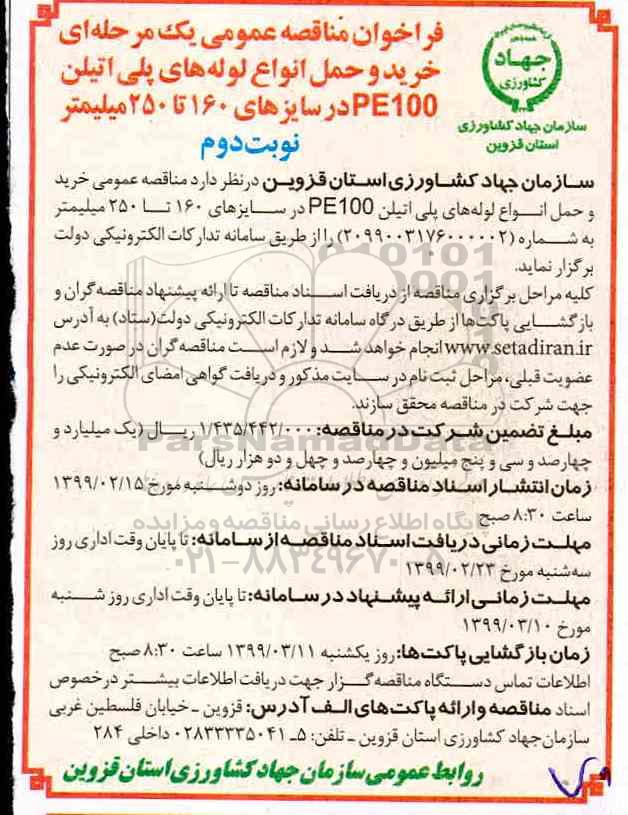 فراخوان مناقصه عمومی یک مرحله‌ای
خرید و حمل انواع لوله‌های پلی اتیلن
PE100 در سایزهای ۱۶۰ تا ۲۵۰ میلیمتر
نوبت دوم
جهاد
کشاورزی
سازمان جهاد کشاورزی
استان قزوین
سازمان جهاد کشاورزی استان قزوین در نظر دارد مناقصه عمومی خرید
و حمل انواع لوله‌های پلی اتیلن PE100 در سایزهای ۱۶۰ تا ۲۵۰ میلیمتر
به شماره (۲۰۹۹۰۰۳۱۷۶۰۰۰۰۰۲) را از طریق سامانه تدارکات الکترونیکی دولت
برگزار نماید.
کلیه مراحل برگزاری مناقصه از دریافت اسناد مناقصه تا ارائه پیشنهاد مناقصه‌گران و
بازگشایی پاکت‌ها از طریق درگاه سامانه تدارکات الکترونیکی دولت (ستاد) به آدرس
www.setadiran.ir انجام خواهد شد و لازم است مناقصه‌گران در صورت عدم
عضویت قبلی، مراحل ثبت نام در سایت مذکور و دریافت گواهی امضای الکترونیکی را
جهت شرکت در مناقصه محقق سازند.
مبلغ تضمین شرکت در مناقصه: ۱/۴۳۵/۴۴۲/۰۰۰ ریال (یک میلیارد و
چهارصد و سی و پنج میلیون و چهارصد و چهل و دو هزار ریال)
زمان انتشار اسناد مناقصه در سامانه: روز دوشنبه مورخ ۱۳۹۹/۰۲/۱۵
ساعت ۸:۳۰ صبح
مهلت زمانی دریافت اسناد مناقصه از سامانه: تا پایان وقت اداری روز
سه‌شنبه مورخ ۱۳۹۹/۰۲/۲۳
مهلت زمانی ارائه پیشنهاد در سامانه: تا پایان وقت اداری روز شنبه
مورخ ۱۳۹۹/۰۳/۱۰
زمان بازگشایی پاکت‌ها: روز یکشنبه ۱۳۹۹/۰۳/۱۱ ساعت ۸:۳۰ صبح
اطلاعات تماس دستگاه مناقصه‌گزار جهت دریافت اطلاعات بیشتر درخصوص
اسناد مناقصه و ارائه پاکت‌های الف آدرس: قزوین - خیابان فلسطین غربی
سازمان جهاد کشاورزی استان قزوین - تلفن: ۵-۰۲۸۳۳۳۳۵۰۴۱ داخلی ۲۸۴
روابط عمومی سازمان جهاد کشاورزی استان قزوین
ParsNamadData
پایگاه اطلاع رسانی مناقصه و مزایده
۰۲۱-۸۸۳۴۹۶۷۰